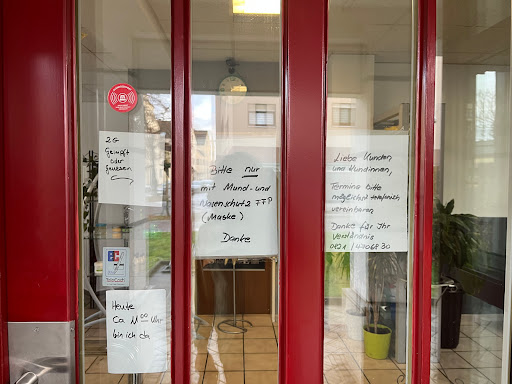 2G
Geimpft
oder
Genesen
Bitte nur
mit Mund- und
Nasenschutz FFP
(Maske)
Danke
Liebe Kunden,
und Kundinnen,
Termine bitte
möglichst telefonisch
vereinbaren
Danke für Ihr
Verständnis
Heute
Ca. 11 00 Uhr
bin ich da